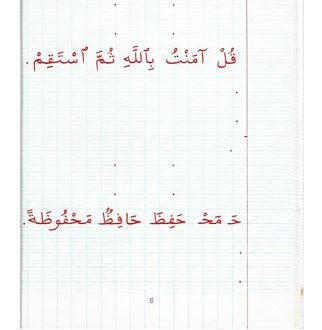 قُلْ آمَنْتُ بِٱللَّهِ ثُمَّ ٱسْتَقِمْ.
حَ مَحْ حَفِظَ حَافِظٌ مَحْفُوظَةً.
6